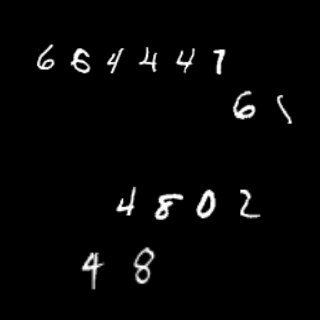 6 6 4 4 4 7
6 1
4 8 0 2
4 8